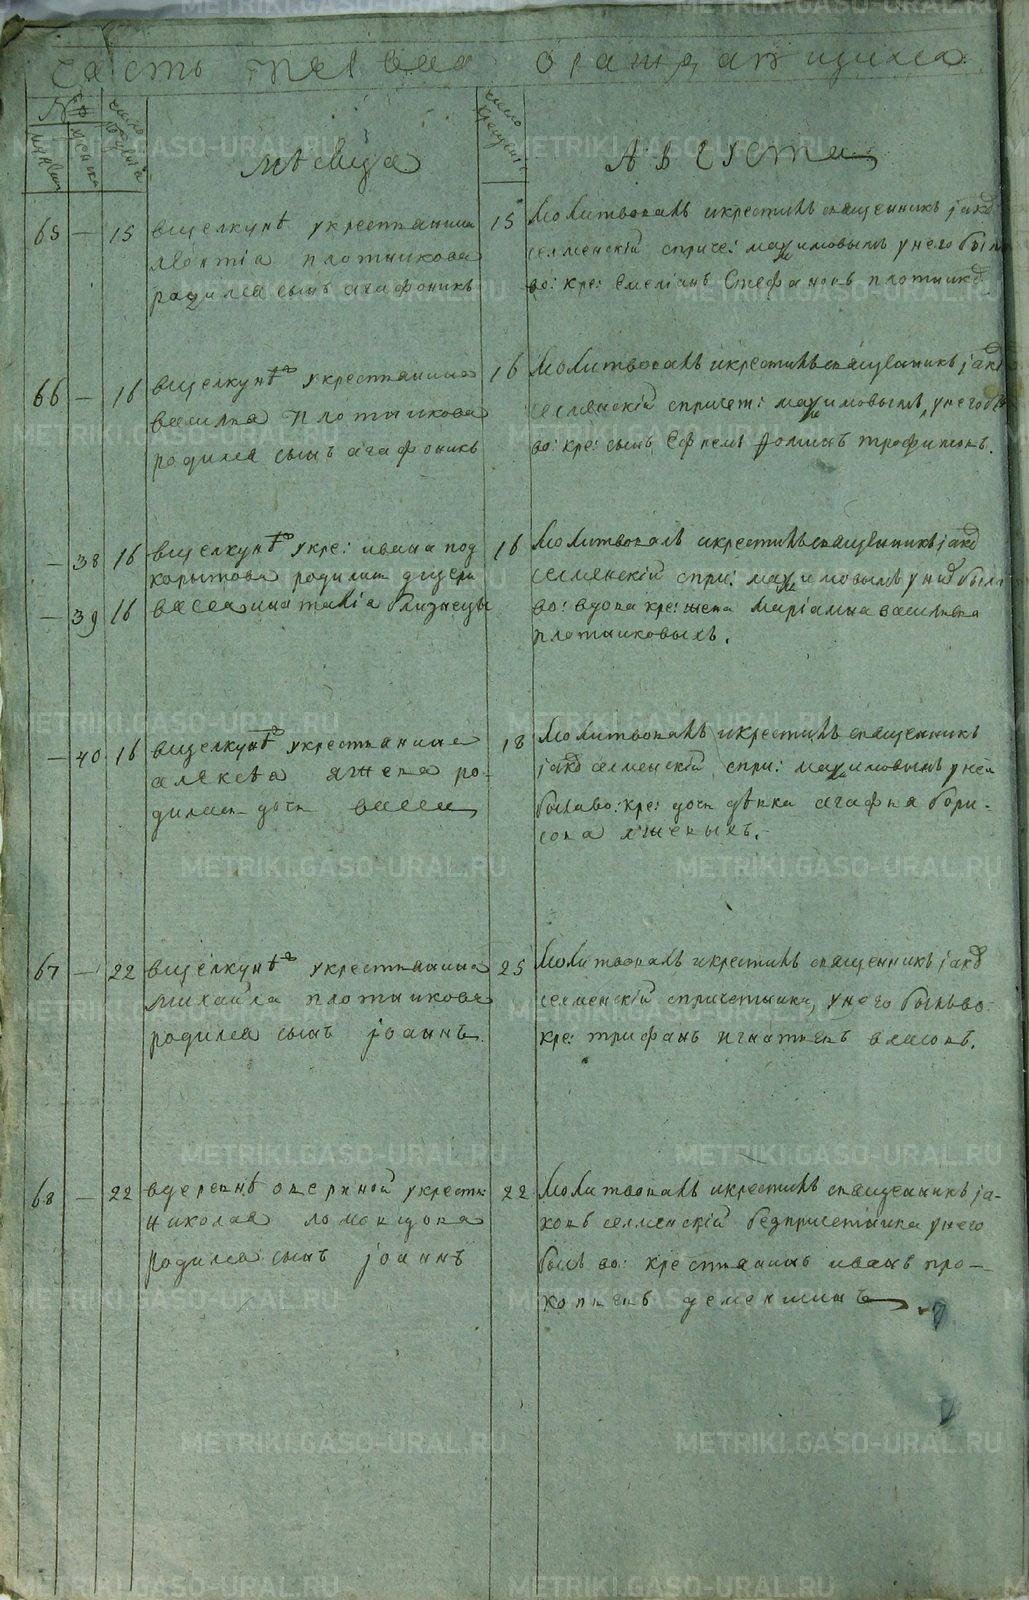 часть первая о раждающихся
№
мужеска
женска
число рожденія
число крещенія
мѣсяца
Августа
65 — 15 вщелкунѣ укрестьянина
леонтіа плотникова
родился сынъ агафоникъ
15 Молитвовалъ икрестилъ священникъ јако
селменскій спричет: максимовымъ унего былъ
во: кре: Емеліанъ Стефановъ плотнико
66 — 16 вщелкунѣ укрестьянина
василья плотникова
родился сынъ агафоникъ
16 Молитвовалъ икрестилъ священникъ јако
селменскій спричет: максимовымъ, унего
во: кре: сынъ Ефремъ Фоминъ трофимовъ.
— 38 16 вщелкунѣ укре: ивана под
корытова родились дщери
— 39 16 васса инаталіа близнецы
16 Молитвовалъ икрестилъ священникъ јако
селменскій спри: максимовымъ уних была
во: вдова кре: жена Маріамна васильева
плотниковыхъ.
— 40 16 вщелкунѣ укрестьянина
алексѣа ро-
дилась дочь васса
18 Молитвовалъ икрестилъ священникъ
јако селменскій, спри: максимовымъ унея
былаво: кре: дочь дѣвка агафья бори-
сова
67 — 22 вщелкунѣ укрестьянина
михаила плотникова
родился сынъ јоаннъ.
25 Молитвовалъ икрестилъ священникъ јако
селменскій спричетники, унего былъво:
кре: трифанъ игнатьевъ власовъ.
68 — 22 вдеревнѣ озерной укрестьян
николая
родился сынъ јоаннъ
22 Молитвовалъ икрестилъ священникъ ја-
ковъ селменскій безпричетника унего
былъ во: крестьянинъ иванъ про-
копьевъ деменшинъ
METRIKI.GASO-URAL.RU